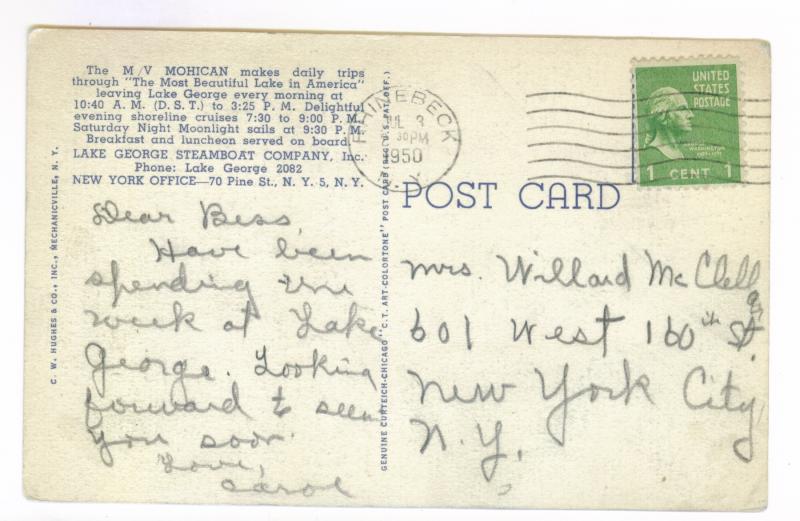 The M/V MOHICAN makes daily trips
through "The Most Beautiful Lake in America"
leaving Lake George every morning at
10:40 A. M. (D. S. T.) to 3:25 P. M. Delightful
evening shoreline cruises 7:30 to 9:00 P. M.
Saturday Night Moonlight sails at 9:30 P. M.
Breakfast and luncheon served on board.
LAKE GEORGE STEAMBOAT COMPANY, Inc.
Phone: Lake George 2082
NEW YORK OFFICE—70 Pine St., N. Y. 5, N. Y.
Dear Bess,
Have been
spending
week at Lake
George. Looking
forward to seein
you soon.
Love,
Carol
C. W. HUGHES & CO., INC., MECHANICVILLE, N. Y.
GENUINE CURTEICH-CHICAGO "C.T. ART-COLORTONE" POST CARD (REG. U.S. PAT. OFF.)
RHINEBECK
JUL 3
30PM
1950
N. Y.
UNITED
STATES
POSTAGE
1 CENT 1
POST CARD
Mrs. Willard McClell
an
601 West 160th St.
New York City
N.Y.